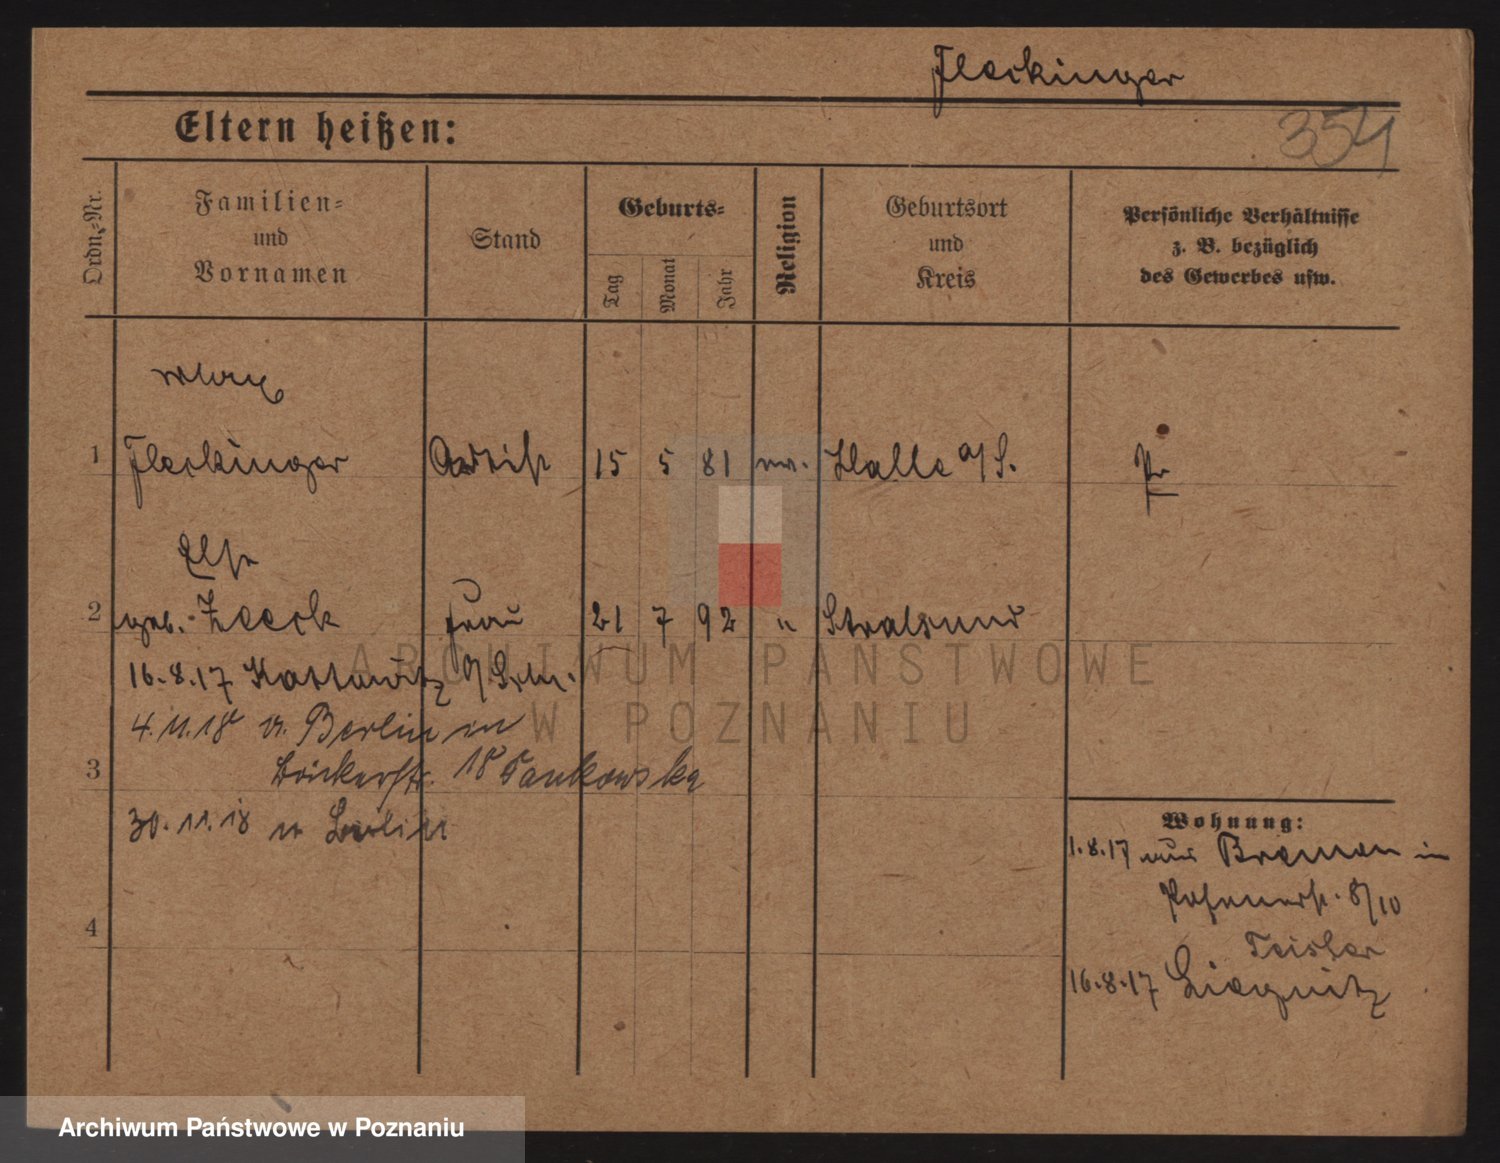 Fleckinger
354
Eltern heißen:
Ordn.-Nr.
Familien-
und
Vornamen
Stand
Geburts-
Tag
Monat
Jahr
Religion
Geburtsort
und
Kreis
Persönliche Verhältnisse
z. B. bezüglich
des Gewerbes usw.
1 Fleckinger Artist 15 5 81 ev. Halle a/S. Pr
Else
2 geb. Zeeck Frau 21 7 92 " Stralsund
16.8.17 Kattowitz
4.11.18 v. Berlin in
3 Bäckerstr. 18 Tankowska
30.11.18 n Berlin
4
Wohnung:
1.8.17 aus Bremen in
Posenerstr. 8/10
Teisler
16.8.17 Liegnitz
ARCHIWUM PAŃSTWOWE
W POZNANIU
Archiwum Państwowe w Poznaniu